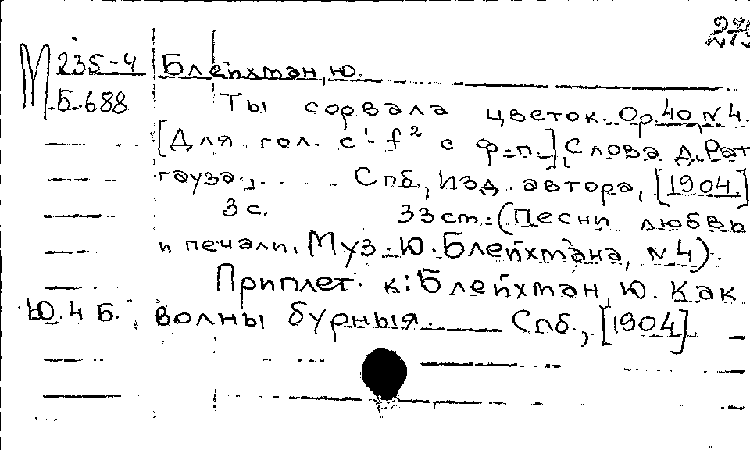 275
М 235-4 Блейхман, Ю.
Б-688 Ты сорвала цветок. Op. 40, N 4.
[Для гол. c¹-f² с ф-п.], Слова Д. Рат
гауза. Спб., Изд. автора, [1904.]
3 с. 33 см. (Песни любви
и печали. Муз. Ю. Блейхмана, N 4).
Приплет. к: Блейхман, Ю. Как
Ю. 4 Б. волны бурныя. Спб., [1904].